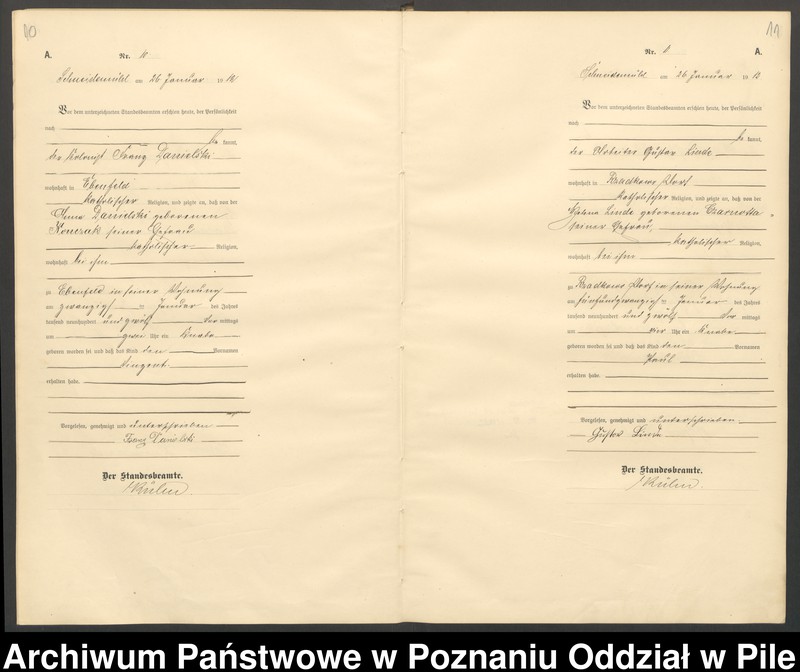 10
A. Nr. 10
Schneidemühl am 26 Januar 1912
Vor dem unterzeichneten Standesbeamten erschien heute, der Persönlichkeit
nach
be kannt,
der Kolonist Franz Danielski
wohnhaft in Ebenfeld
katholischer Religion, und zeigte an, daß von der
Danielski geborenen
Konczak seiner Ehefrau
katholischer Religion,
wohnhaft bei ihm
zu Ebenfeld in seiner Wohnung
am zwanzigst Januar des Jahres
tausend neunhundert und zwölf Vor mittags
um zwei Uhr ein Knabe
geboren worden sei und daß das Kind den Vornamen
Vinzent
erhalten habe.
Vorgelesen, genehmigt und unterschrieben
Franz Danielski
Der Standesbeamte.
11
Nr. A.
Schneidemühl am 26 Januar 1912
Vor dem unterzeichneten Standesbeamten erschien heute, der Persönlichkeit
nach
be kannt,
der Arbeiter Gustav Linde
wohnhaft in Dorf
katholischer Religion, und zeigte an, daß von der
Linde geborenen Czarnotta
seiner Ehefrau,
katholischer Religion,
wohnhaft bei ihm
zu Dorf in seiner Wohnung
am fünfundzwanzigst Januar des Jahres
tausend neunhundert und zwölf Vor mittags
um vier Uhr ein Knabe
geboren worden sei und daß das Kind den Vornamen
Paul
erhalten habe.
Vorgelesen, genehmigt und unterschrieben
Gustav Linde
Der Standesbeamte.
Archiwum Państwowe w Poznaniu Oddział w Pile